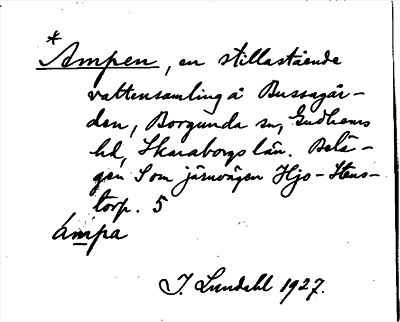 * Ampen, en stillastående
vattensamling å Bussagår-
den, Borgunda sn, Gudhems
hd, Skaraborgs län. Belä-
gen S om järnvägen Hjo-Stens-
torp. 5
ampa
I. Lundahl 1927.